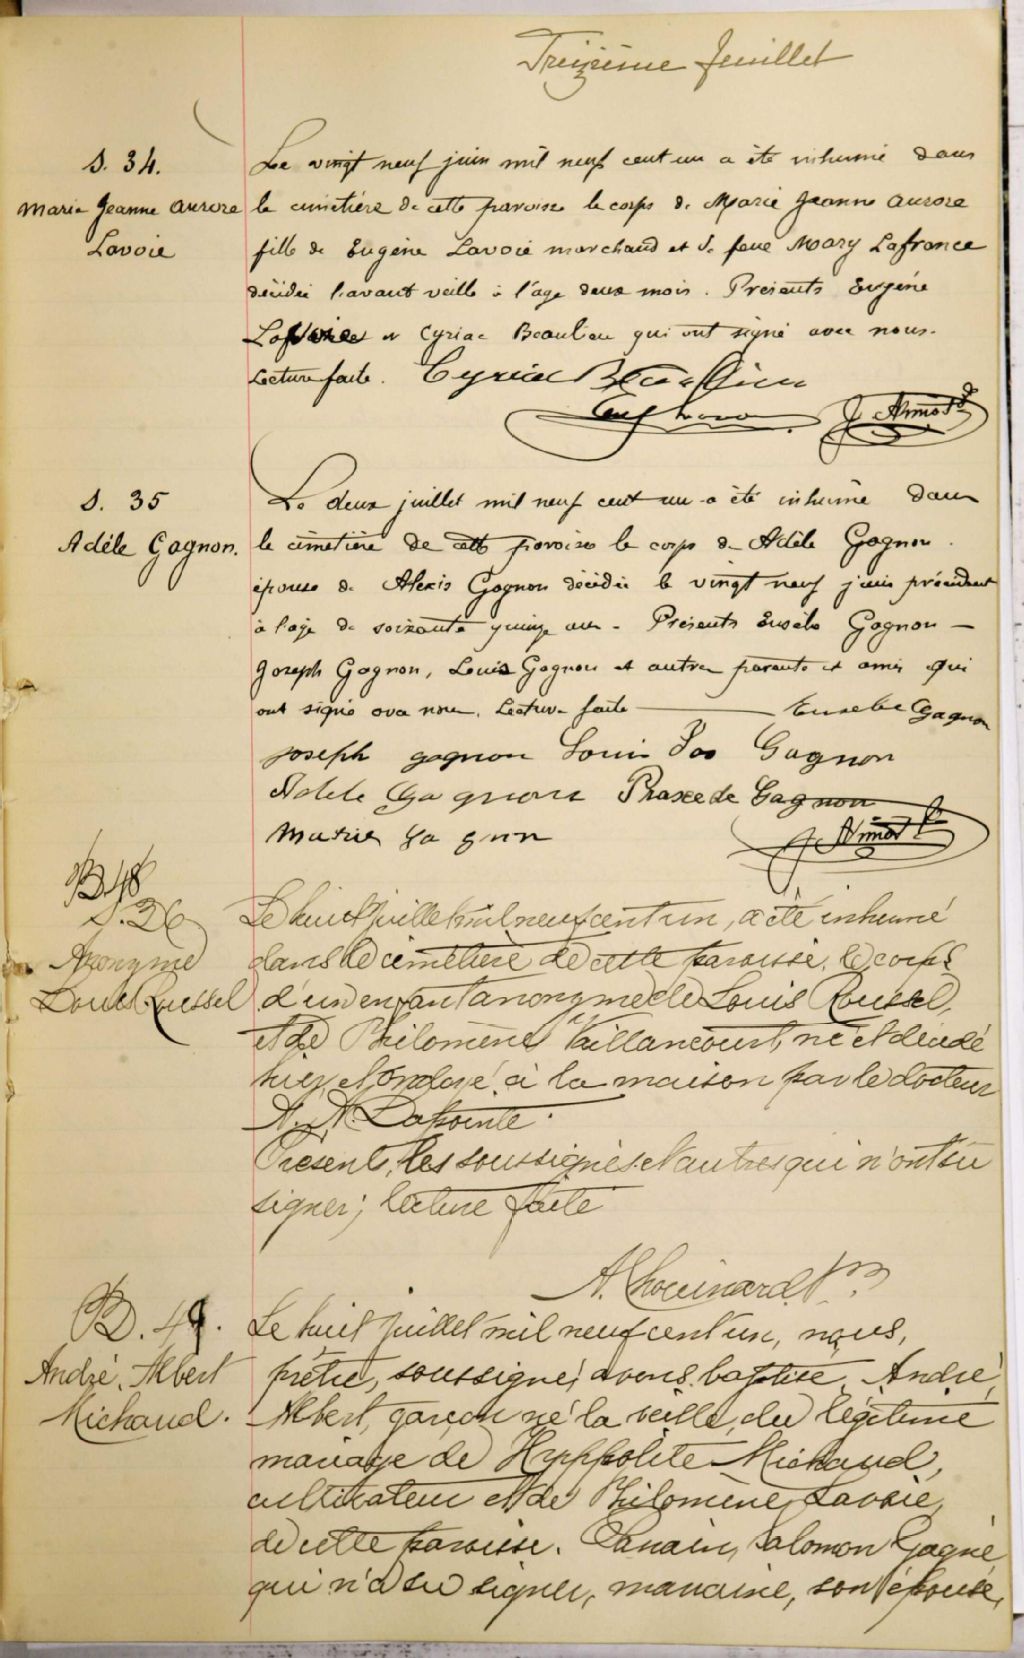 Treizième feuillet
S. 34.
Marie Jeanne Aurore
Lavoie
Le vingt neuf juin mil neuf cent un a été inhumé dans
le cimetière de cette paroisse le corps de Marie Jeanne Aurore
fille de Eugène Lavoie marchand et de feue Mary Lafrance
décédée l'avant veille à l'age deux mois. Présents Eugène
et Cyriac Beaulieu qui ont signé avec nous.
Lecture faite. Cyriac Beaulieu
S. 35
Adèle Gagnon.
Le deux juillet mil neuf cent un a été inhumé dans
le cimetière de cette paroisse le corps de Adèle Gagnon
épouse de Alexis Gagnon décédée le vingt neuf juin précédent
à l'age de soixante quinze ans - Présents Eusèbe Gagnon —
Joseph Gagnon, Louis Gagnon et autres parents et amis qui
ont signé avec nous. Lecture faite — Eusebe Gagnon
Joseph gagnon Louis Jos Gagnon
Adele Gagnon Praxede Gagnon
Gagnon
B 48
S. 36
Anonyme
Louis Roussel
Le huit Juillet mil neuf cent un, a été inhumé
dans le cimetière de cette paroisse, le corps
d'un enfant anonyme de Louis Roussel,
et de Philomène Vaillancourt, né et décédé
hier, et ondoyé à la maison par le docteur
A. A. Lapointe.
Présents, les soussignés et autres qui n'ont su
signer; lecture faite
A. Chouinard Ptre
B. 49.
André, Albert
Michaud.
Le huit Juillet mil neuf cent un, nous,
prêtre, soussigné, avons baptisé, André,
Albert, garçon né la veille, du légitime
mariage de Hyppolite Michaud,
cultivateur et de Philomène Lavoie,
de cette paroisse. Parrain, Salomon Gagné
qui n'a su signer, marraine, son épouse,